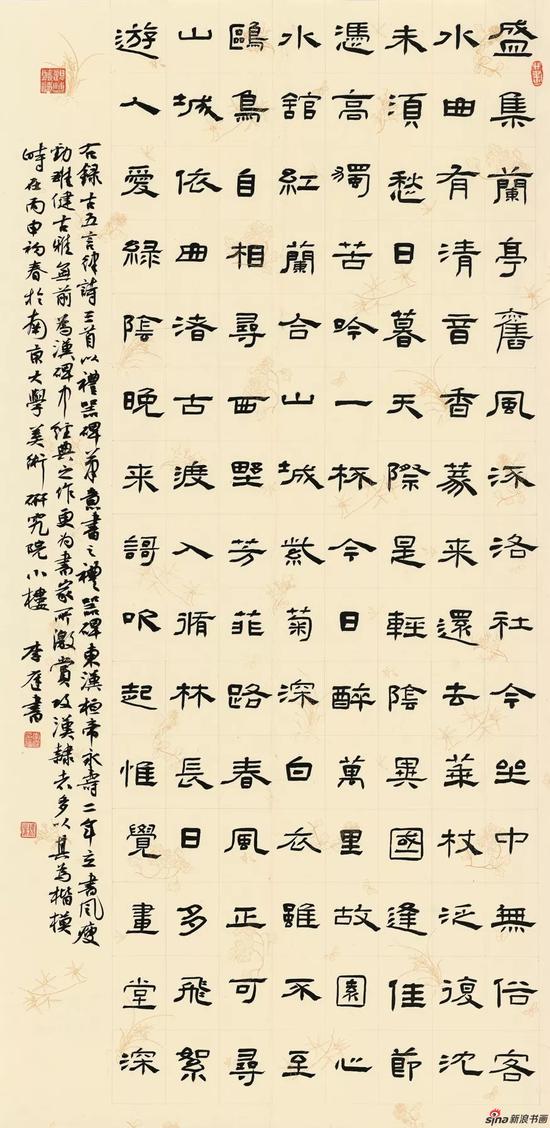 盛集蘭亭舊風流洛社今坐中無俗客
水曲有清音香篆來還去華枝泛復沈
未須愁日暮天際是輕陰異國逢佳節
憑高獨苦吟一杯今日醉萬里故園心
水館紅蘭合山城紫菊深白衣雖不至
鷗鳥自相尋西墅芳菲路春風正可尋
山城依曲渚古渡入脩林長日多飛絮
遊人愛綠陰晚來謌吹起惟覺畫堂深
右錄古五言律詩三首以禮器碑筆意書之禮器碑東漢桓帝永壽二年立書風瘦
勁雅健古雅無前為漢碑中經典之作更為書家所激賞攻漢隸者多以其為楷模
時在丙申初春於南京大學美術研究院小樓 李庭書
sina新浪书画